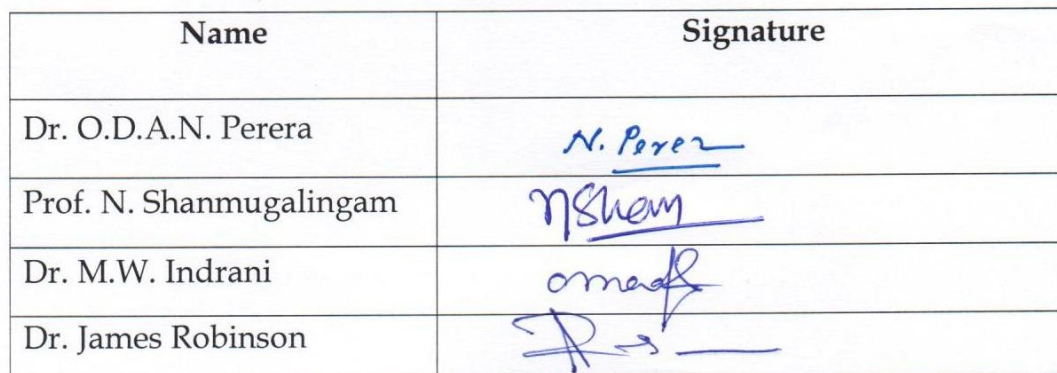 Name Signature
Dr. O.D.A.N. Perera N. Perer
Prof. N. Shanmugalingam NSham
Dr. M.W. Indrani
Dr. James Robinson